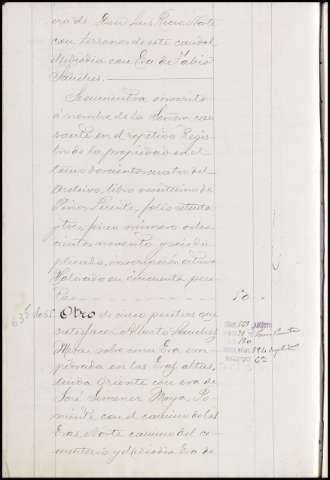 era de Don Luis Riera Norte
con terrenos de este caudal
Mediodia con Era de Fabio
Sanchez.
Se encuentra inscrito
á nombre de la Señora cau
sante en el repetivo Regis
tro de la propiedad en el
tomo doscientos cuatro del
archivo, libro veintiuno de
Pinos Puente, folio setenta
y tres finca número ochos
cientos noventa y seis du
plicado, inscripción octava
Valorado en cincuenta pese
tas 50
Otro de cinco pesetas que
satisface Alberto Sanchez
Mora sobre una Era em
pedrada en las Eras altas,
linda Oriente con era de
José Jimenez Moya Po
niente con el camino de las
Eras Norte camino del ce
menterio y Mediodia Era de